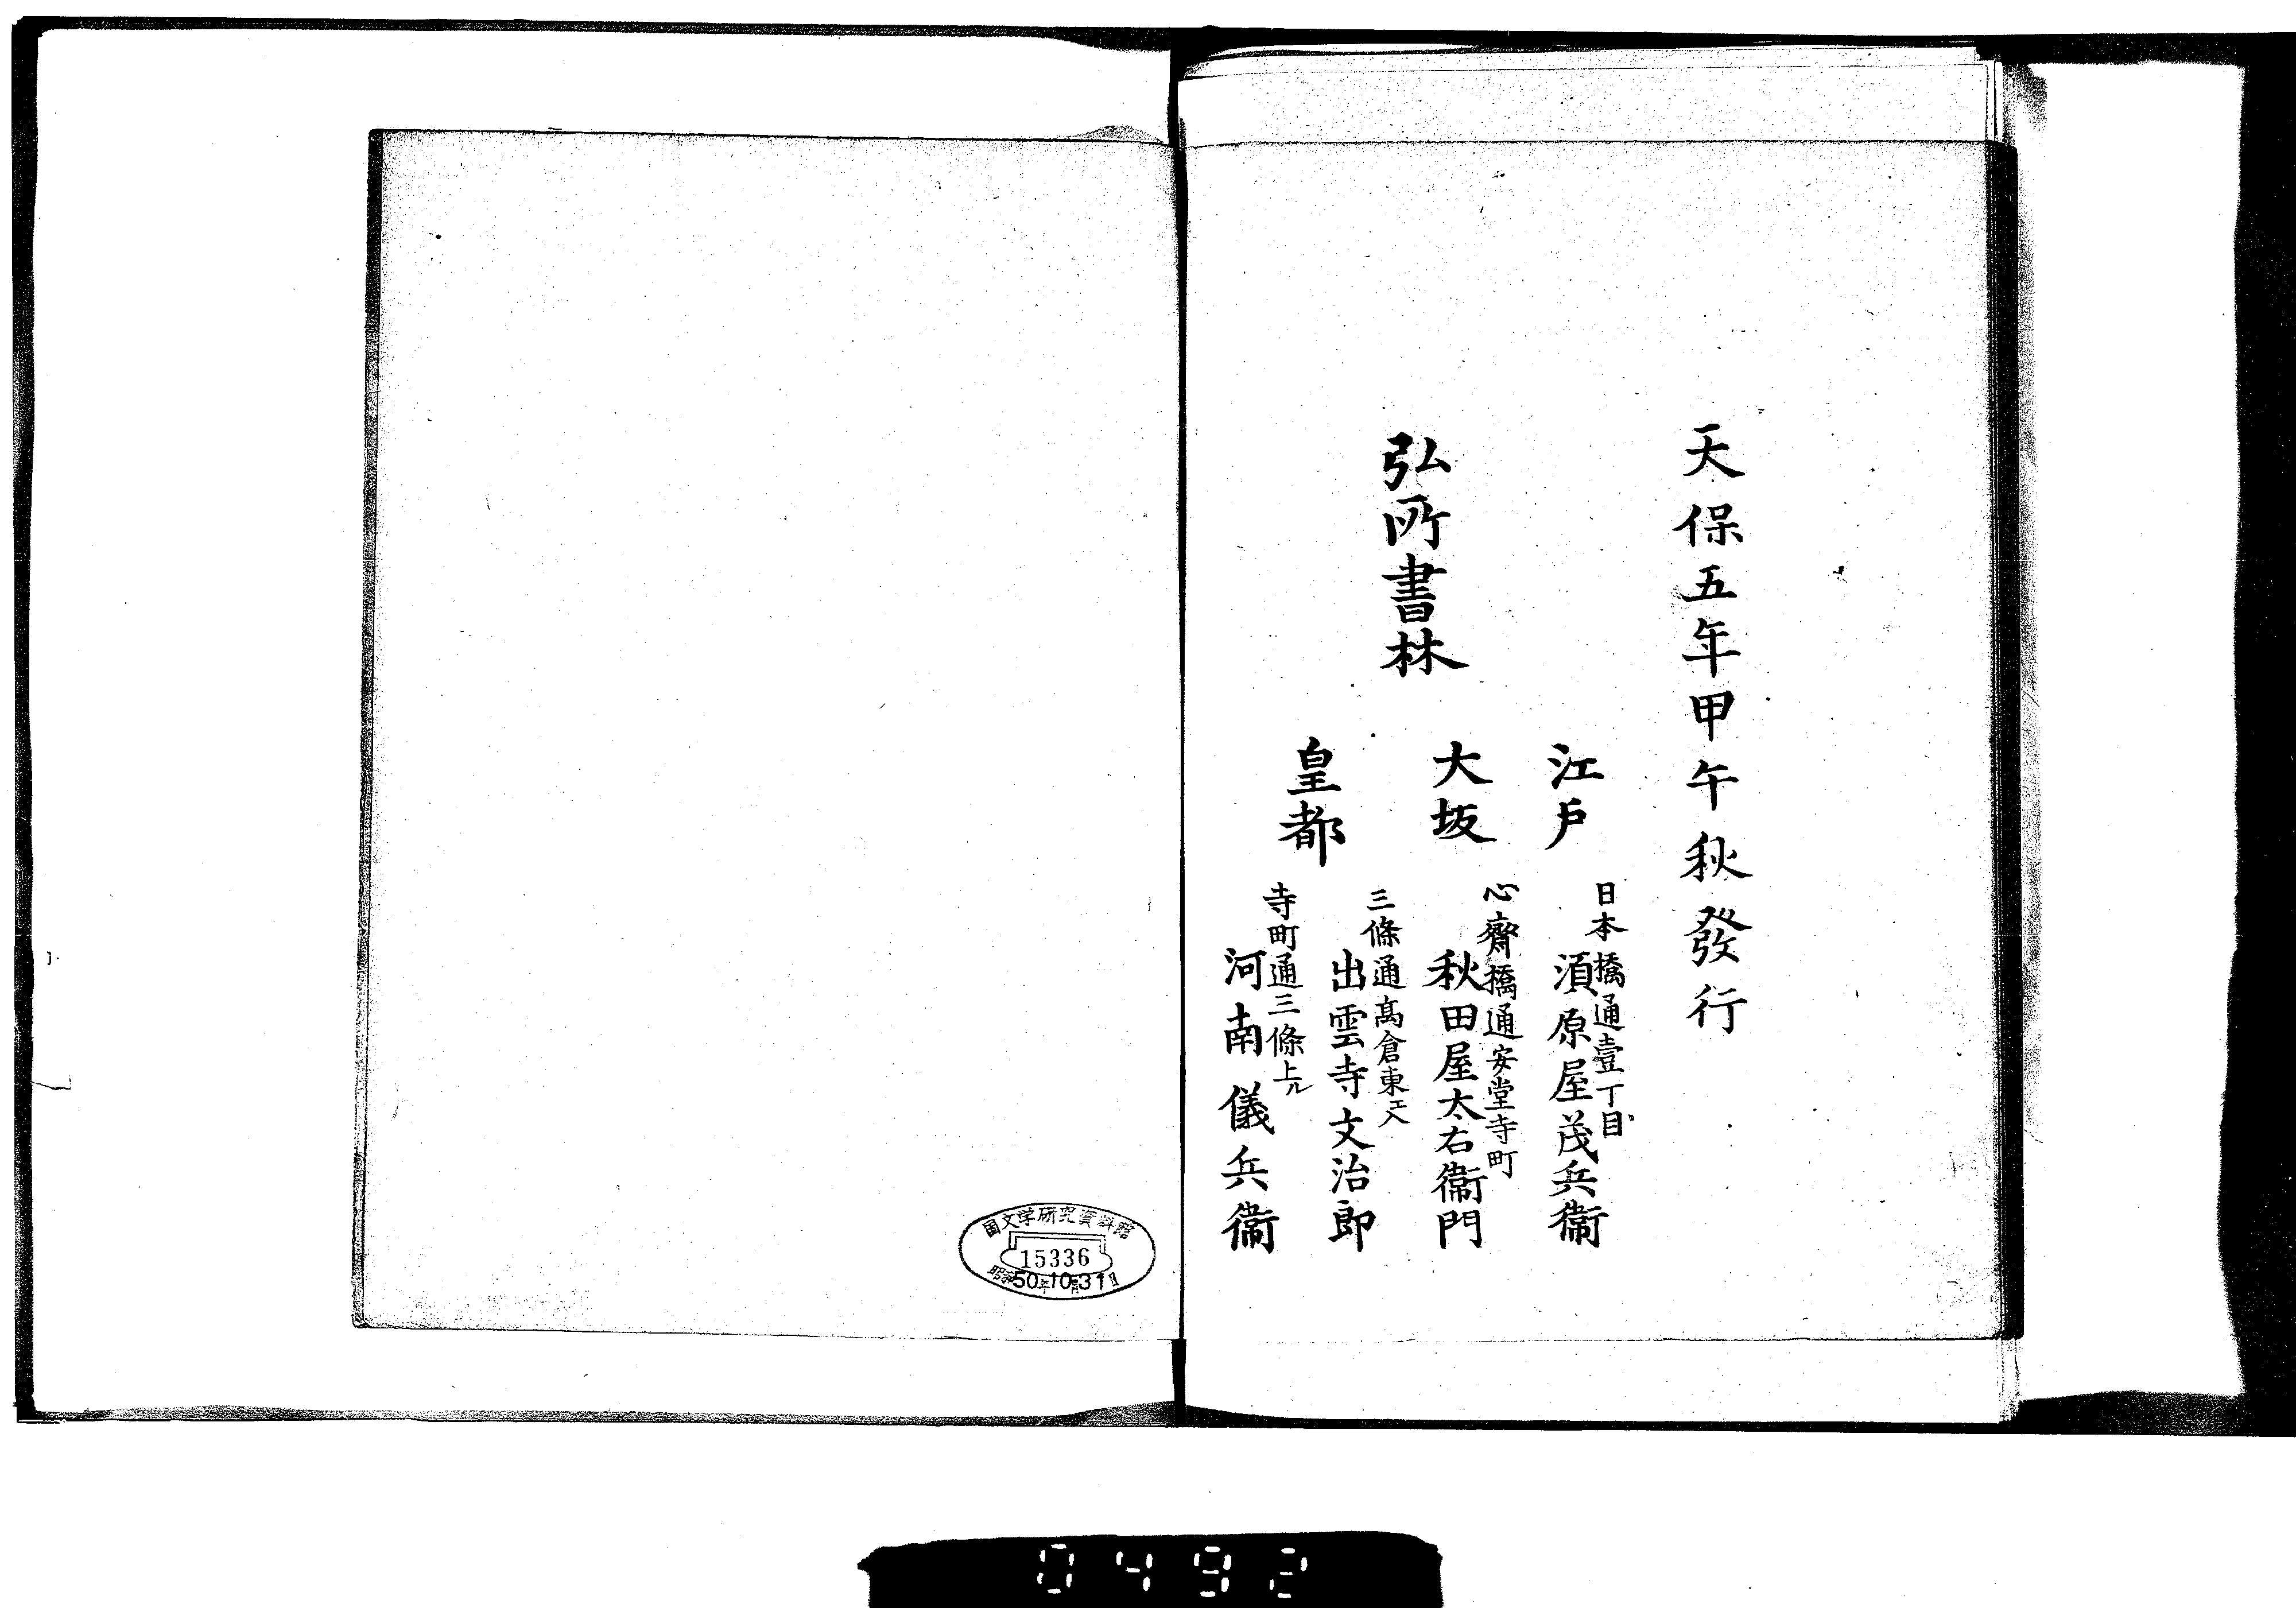 天保五年甲午秋發行
弘所書林
江戸
日本橋通壹丁目
須原屋茂兵衞
大坂
心齋橋通安堂寺町
秋田屋太右衞門
皇都
三條通髙倉東エ入
出雲寺文治郎
寺町通三條上ル
河南儀兵衞
国文学研究資料館
15336
昭和50年10月31日
0492